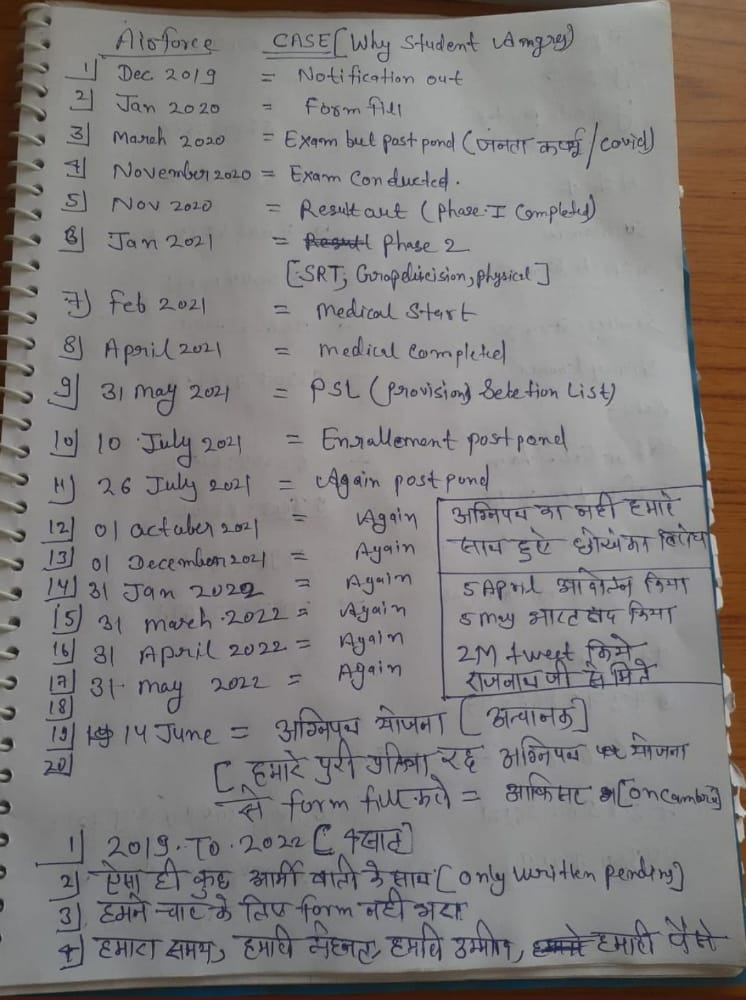 Airforce CASE [Why Student Angrey)
1] Dec 2019 = Notification out
2] Jan 2020 = Form fill
3] March 2020 = Exam but post pond (जनता कर्फ्यू/covid)
4] November 2020 = Exam conducted.
5] Nov 2020 = Result out (phase-I Completed)
6] Jan 2021 = Phase 2
[SRT, Gropdiscision, physical]
7] Feb 2021 = medical Start
8] April 2021 = medical completed
9] 31 may 2021 = PSL (provisional Seletion List)
10] 10 July 2021 = Enrallement post pond
11] 26 July 2021 = Again post pond
12] 01 actuber 2021 = Again
13] 01 December 2021 = Again
14] 31 Jan 2022 = Again
15] 31 march 2022 = Again
16] 31 April 2022 = Again
17] 31 may 2022 = Again
अग्निपथ का नही हमारे
साथ हुऐ धोखे का विरोध
5 April आंदोलन किया
5 may भारत बंद किया
2M tweet किये
राजनाथ जी से मिले
18]
19] 14 June = अग्निपथ योजना [अचानक]
20]
[हमारे पुरी प्रक्रिया रद्द अग्निपथ योजना
से form fill करो =
1] 2019 To 2022 [4 साल]
2] ऐसा ही कुछ आर्मी वालो के साथ [only written pending]
3] हमने चार के लिए form नही भरा
4] हमारा समय, हमारी मेहनत, हमारी उम्मीद, हमारी पैसे